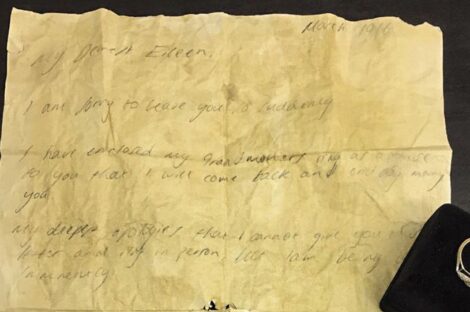 March 191
My Dearest Eileen,
I am sorry to leave you so suddenly
I have enclosed my Grandmothers ring as a promise
to you that I will come back and one day marry
you
My deepest apologies that I cannot give you
letter and ring in person, but I am being
imminently